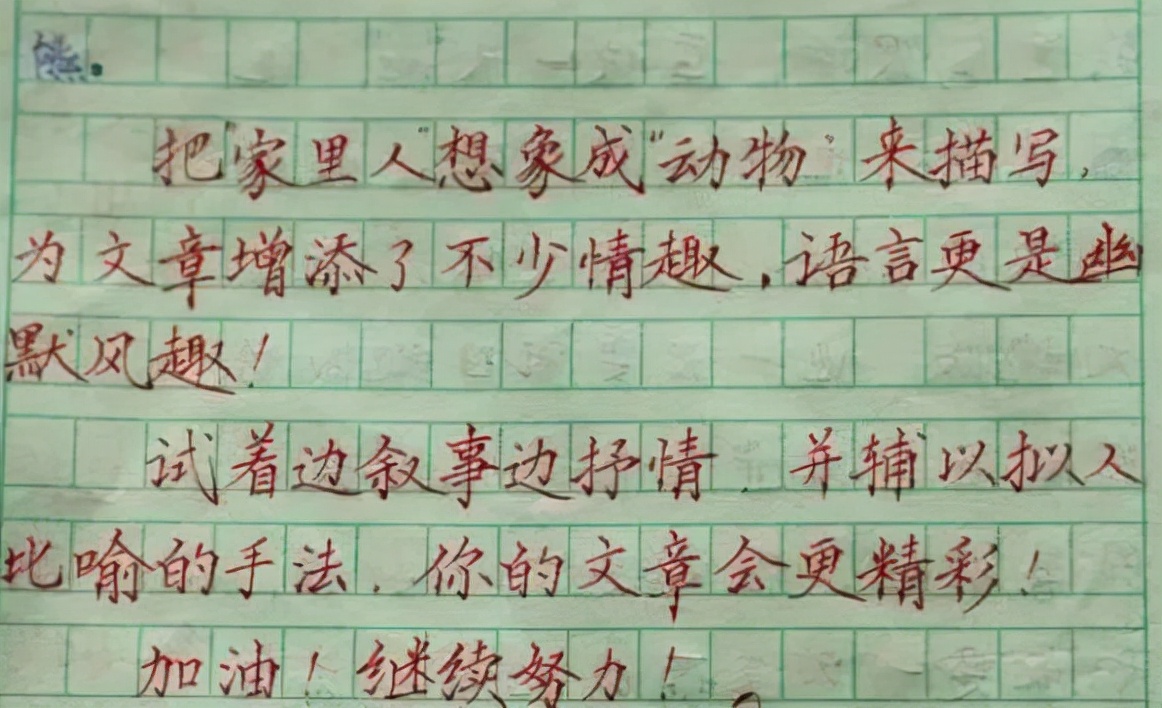 把"家里人"想象成"动物"来描写,
为文章增添了不少情趣,语言更是幽
默风趣!
试着边叙事边抒情,并辅以拟人
比喻的手法,你的文章会更精彩!
加油!继续努力!